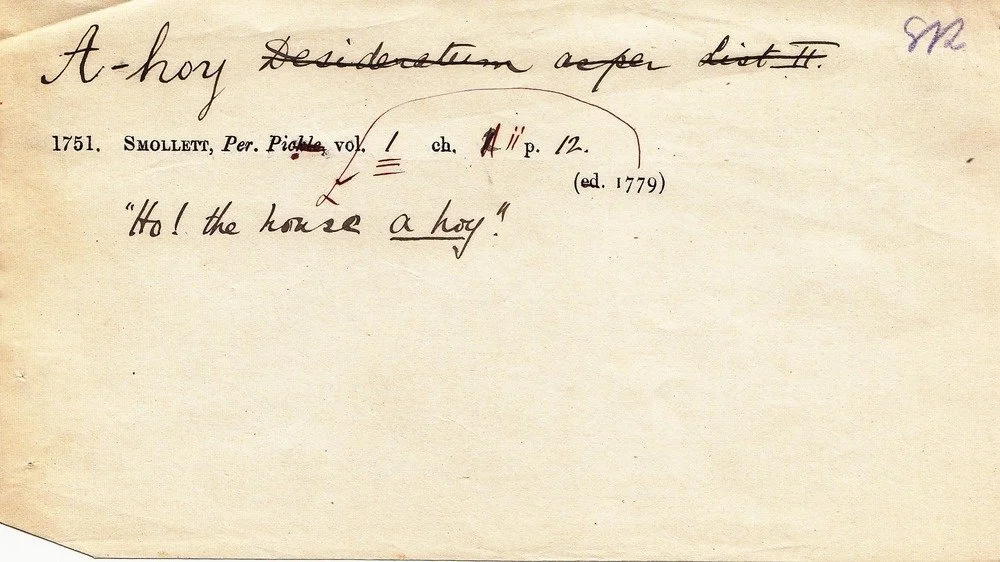 A-hoy Desideratum as per List II.
1751. SMOLLETT, Per. Pickle, vol. 1 ch. ii p. 12.
(ed. 1779)
"Ho! the house a hoy"!